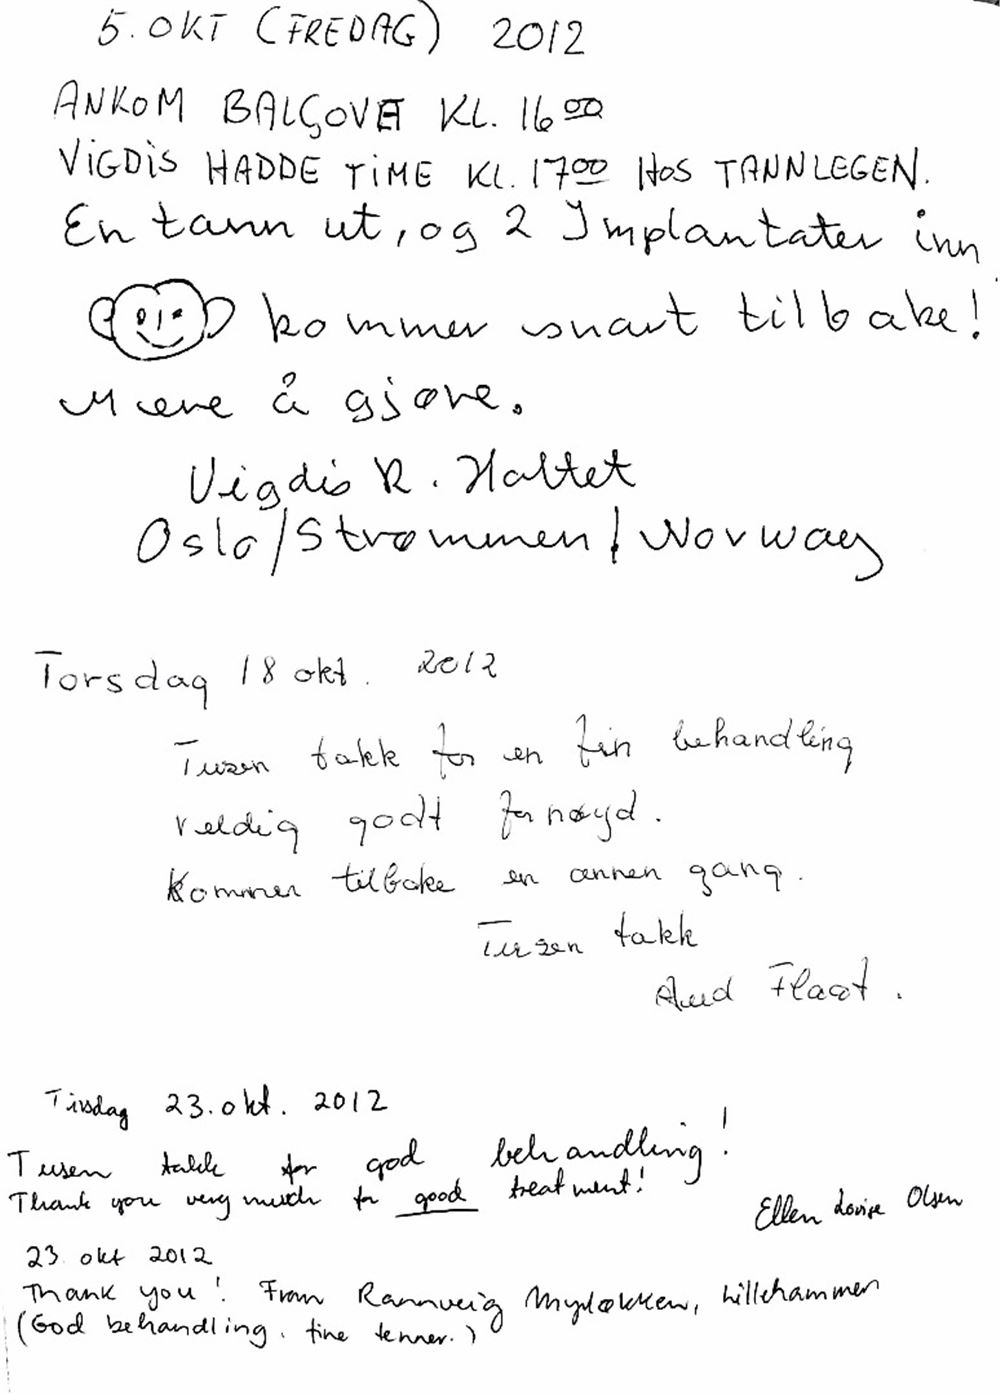 5. OKT (FREDAG) 2012
ANKOM BALÇOVA KL. 16 00
ViGDiS HADDE TiME KL. 17 00 HOS TANNLEGEN.
En tann ut, og 2 Implantater inn
kommer snart tilbake!
Mere å gjøre.
Vigdis R. Haltet
Oslo/Strømmen/Norway
Torsdag 18 okt. 2012
Tusen takk for en fin behandling
veldig godt fornøyd.
Kommer tilbake en annen gang.
Tusen takk
Aud Flaat.
Tirsdag 23. okt. 2012
Tusen takk for god behandling!
Thank you very much for good treatment!
Ellen Lovise Olsen
23. okt 2012
Thank you! From Rannveig, Lillehammer
(God behandling. fine tenner.)